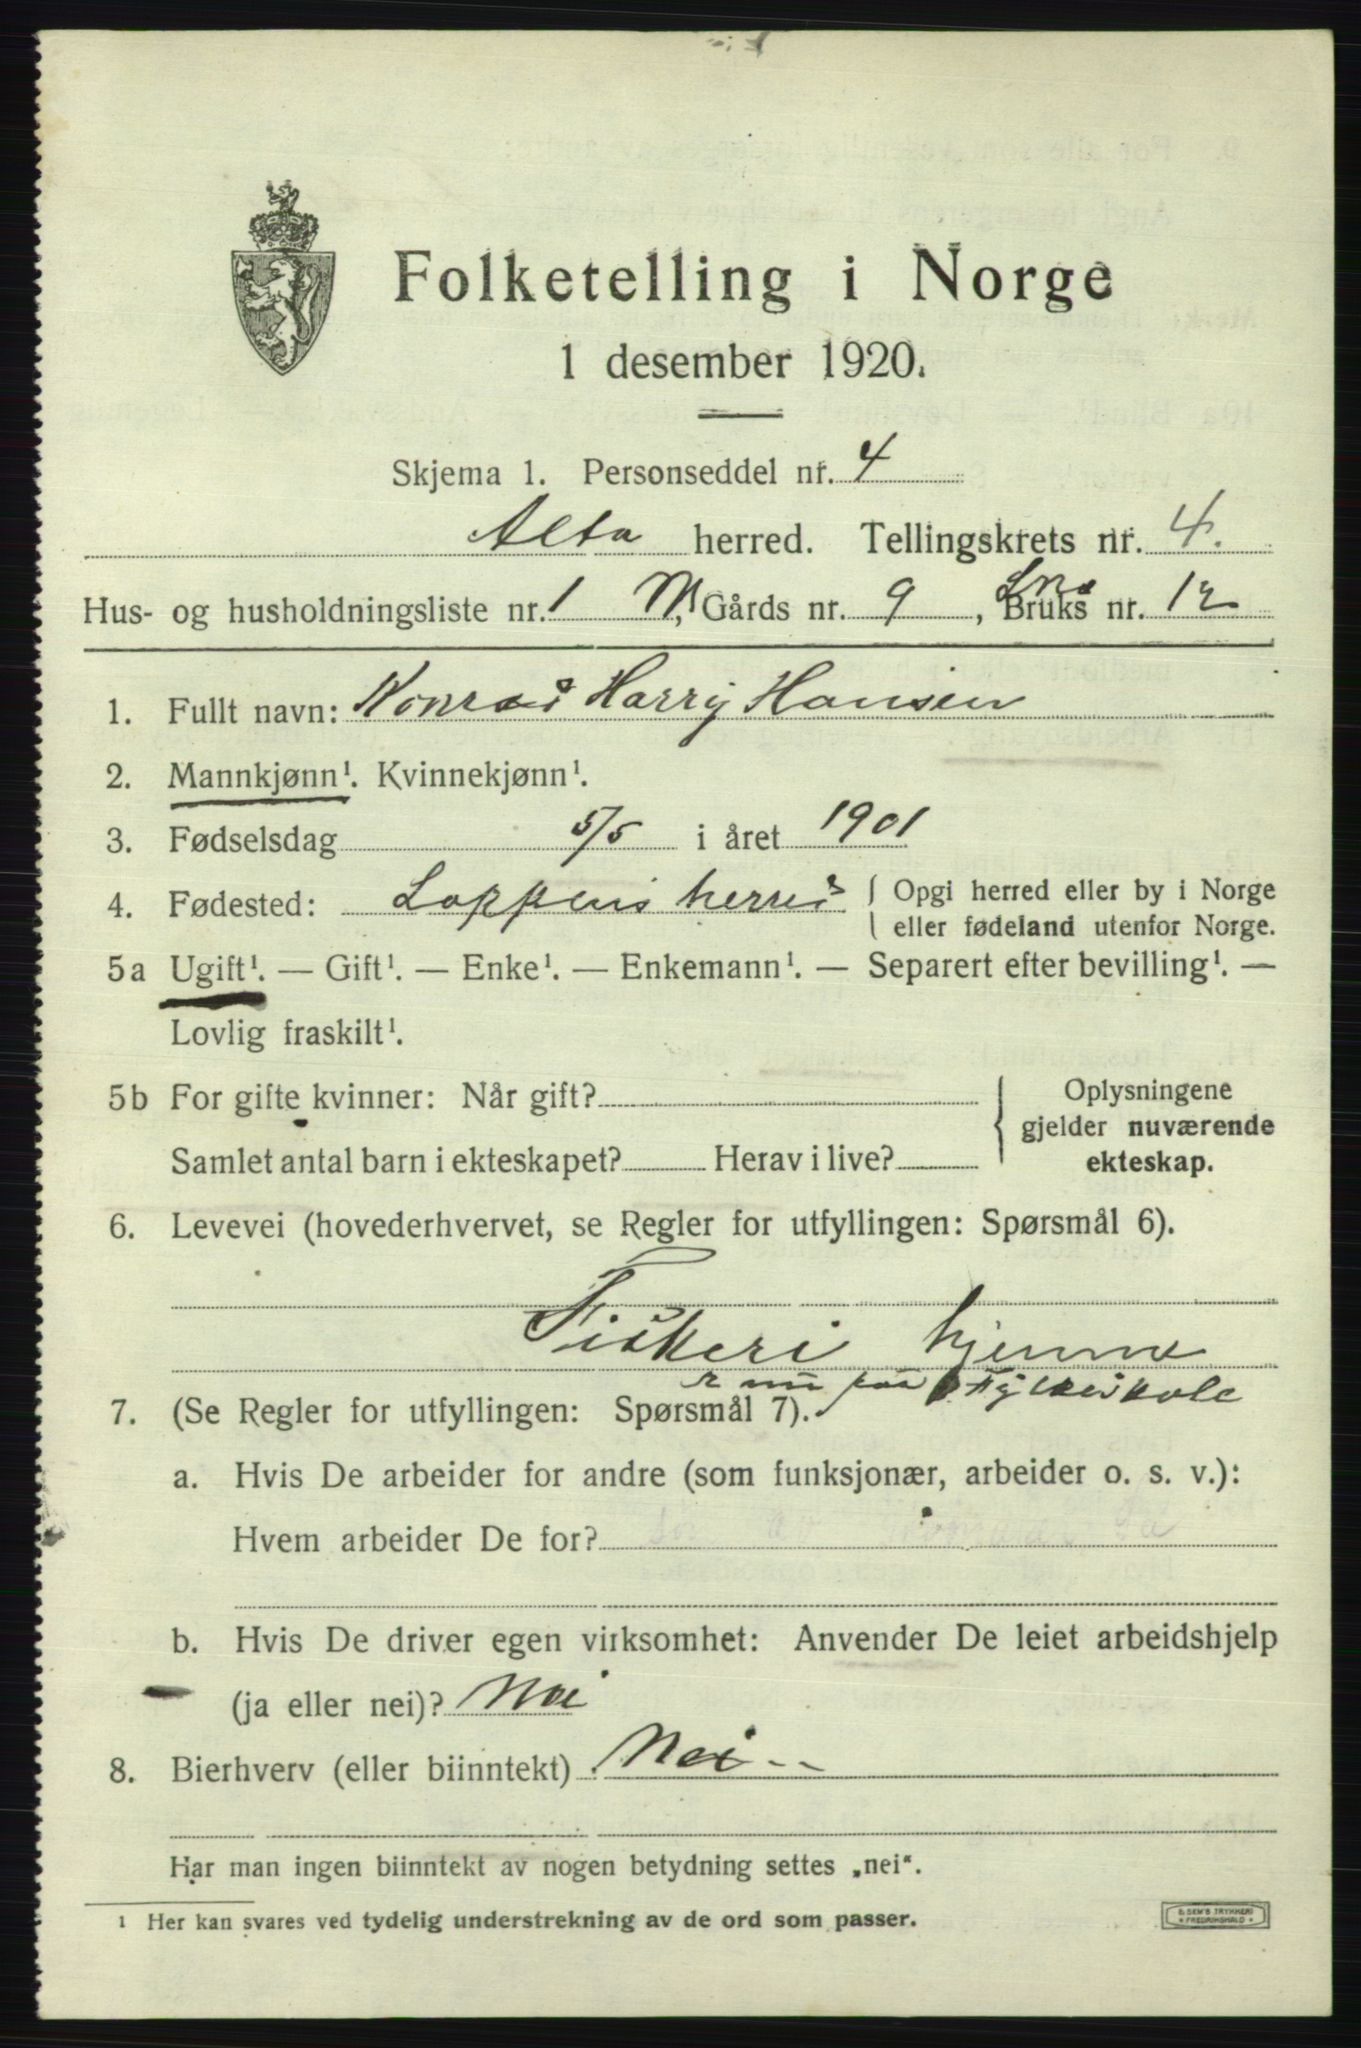 Folketelling i Norge
1 desember 1920.
Skjema 1. Personseddel nr. 4
Alta herred. Tellingskrets nr. 4.
Hus- og husholdningsliste nr. 1 M, Gårds nr. 9, Lno Bruks nr. 12
1. Fullt navn: Konrad Harry Hansen
2. Mannkjønn¹. Kvinnekjønn¹.
3. Fødselsdag 5/5 i året 1901
4. Fødested: Loppens herred { Opgi herred eller by i Norge
eller fødeland utenfor Norge.
5a Ugift¹. — Gift¹. — Enke¹. — Enkemann¹. — Separert efter bevilling¹. —
Lovlig fraskilt¹.
5b For gifte kvinner: Når gift? { Oplysningene
gjelder nuværende
Samlet antal barn i ekteskapet? Herav i live? ekteskap.
6. Levevei (hovederhvervet, se Regler for utfyllingen: Spørsmål 6).
Fiskeri hjemme
nu paa Fylkesskole
7. (Se Regler for utfyllingen: Spørsmål 7).
a. Hvis De arbeider for andre (som funksjonær, arbeider o. s. v.):
Hvem arbeider De for?
b. Hvis De driver egen virksomhet: Anvender De leiet arbeidshjelp
(ja eller nei)? Nei
8. Bierhverv (eller biinntekt) Nei
Har man ingen biinntekt av nogen betydning settes „nei“.
¹ Her kan svares ved tydelig understrekning av de ord som passer.
E. SEM'S TRYKKERI
FREDRIKSHALD